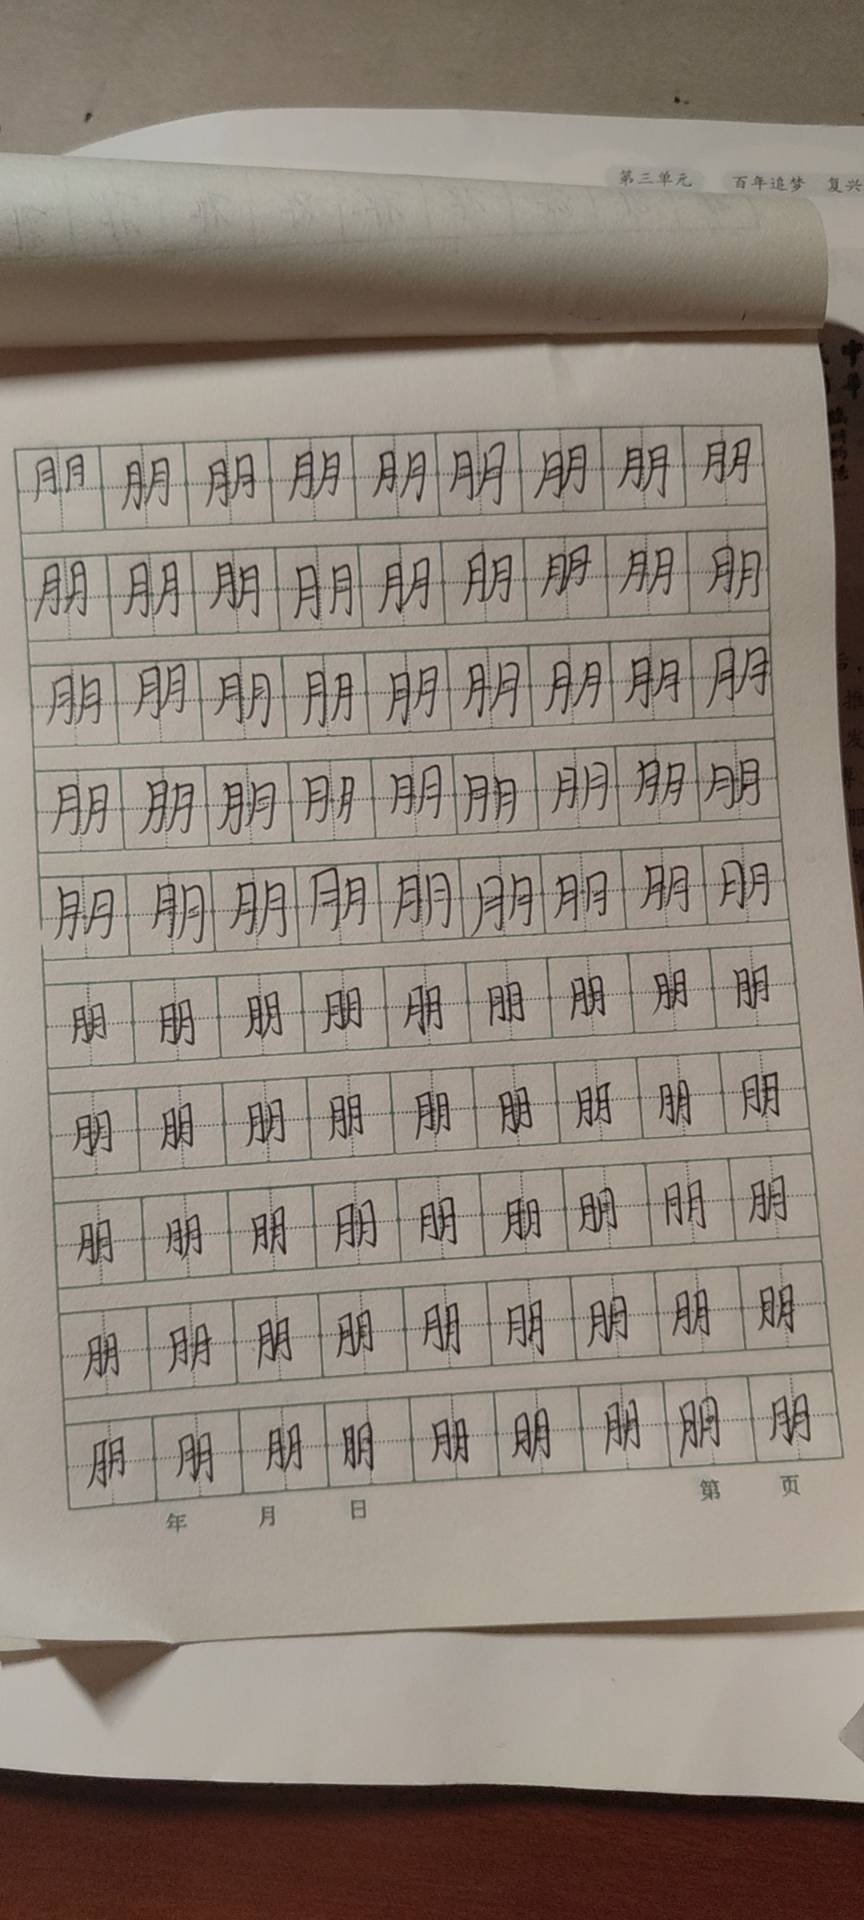 第三单元 百年追梦 复兴
朋朋朋朋朋朋朋朋朋
朋朋朋朋朋朋朋朋朋
朋朋朋朋朋朋朋朋朋
朋朋朋朋朋朋朋朋朋
朋朋朋朋朋朋朋朋朋
朋朋朋朋朋朋朋朋朋
朋朋朋朋朋朋朋朋朋
朋朋朋朋朋朋朋朋朋
朋朋朋朋朋朋朋朋朋
朋朋朋朋朋朋朋朋朋
年 月 日 第 页